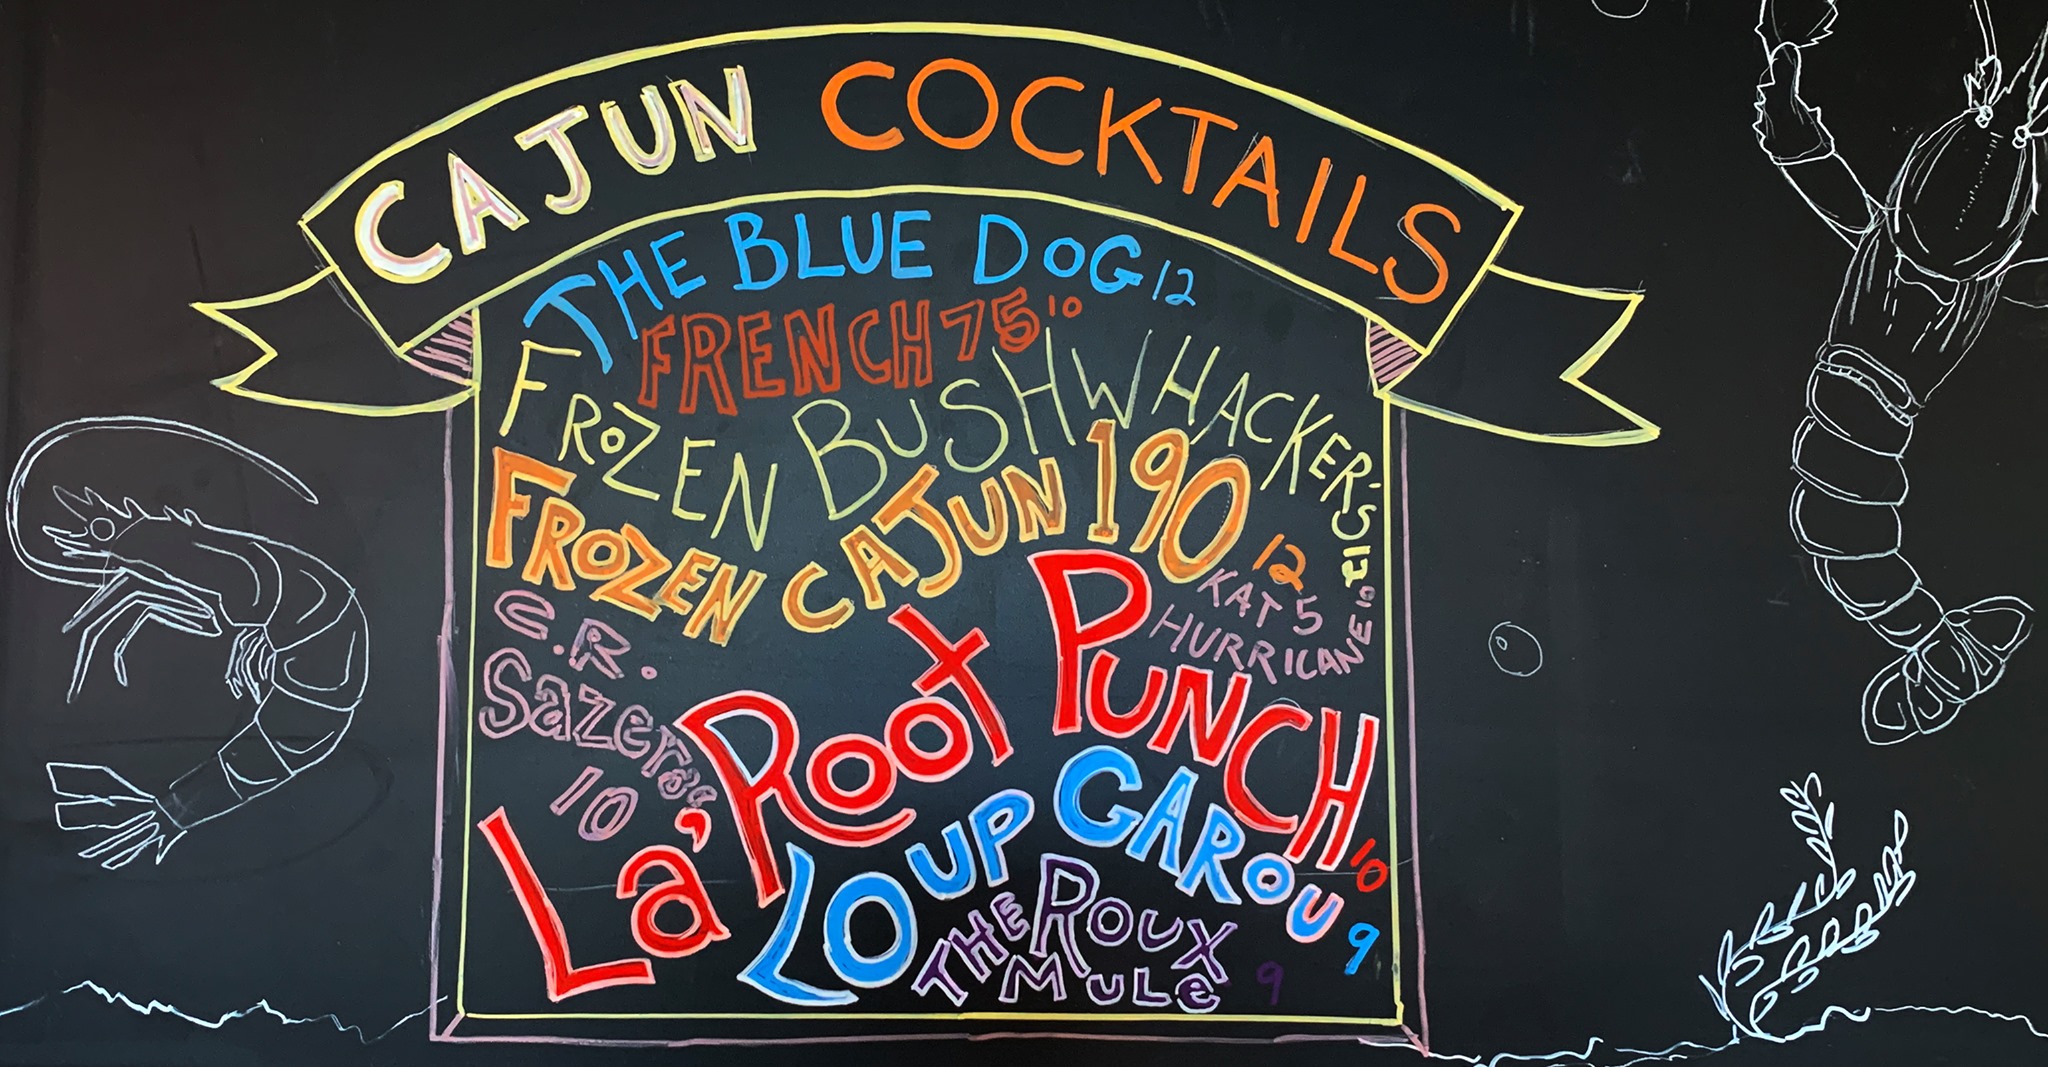 CAJUN COCKTAILS
THE BLUE DOG 12
FRENCH 75 10
FROZEN BUSHWHACKER'S 12
FROZEN CAJUN 190 12
KAT 5
HURRICANE 10
C.R.
Sazerac
10
La' Root PUNCH 10
LOUP GAROU 9
THE ROUX
MULe 9